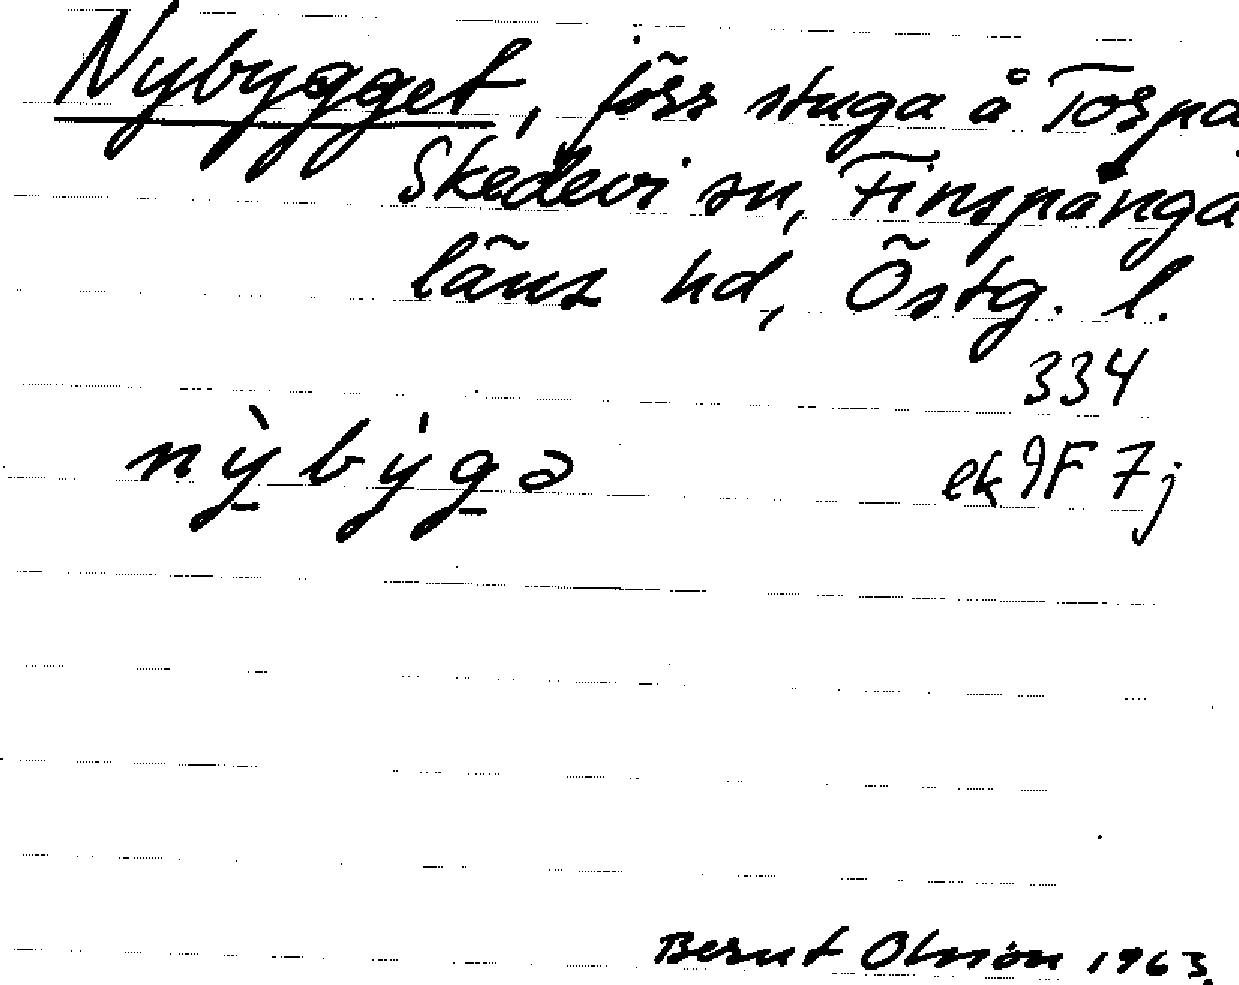 Nybygget, förr stuga å Torpa
Skedevi sn, Finspånga
läns hd, Östg. l.
334
nỳ̱býg̱ə
ek 9F 7j
Bernt Olsson 1963.